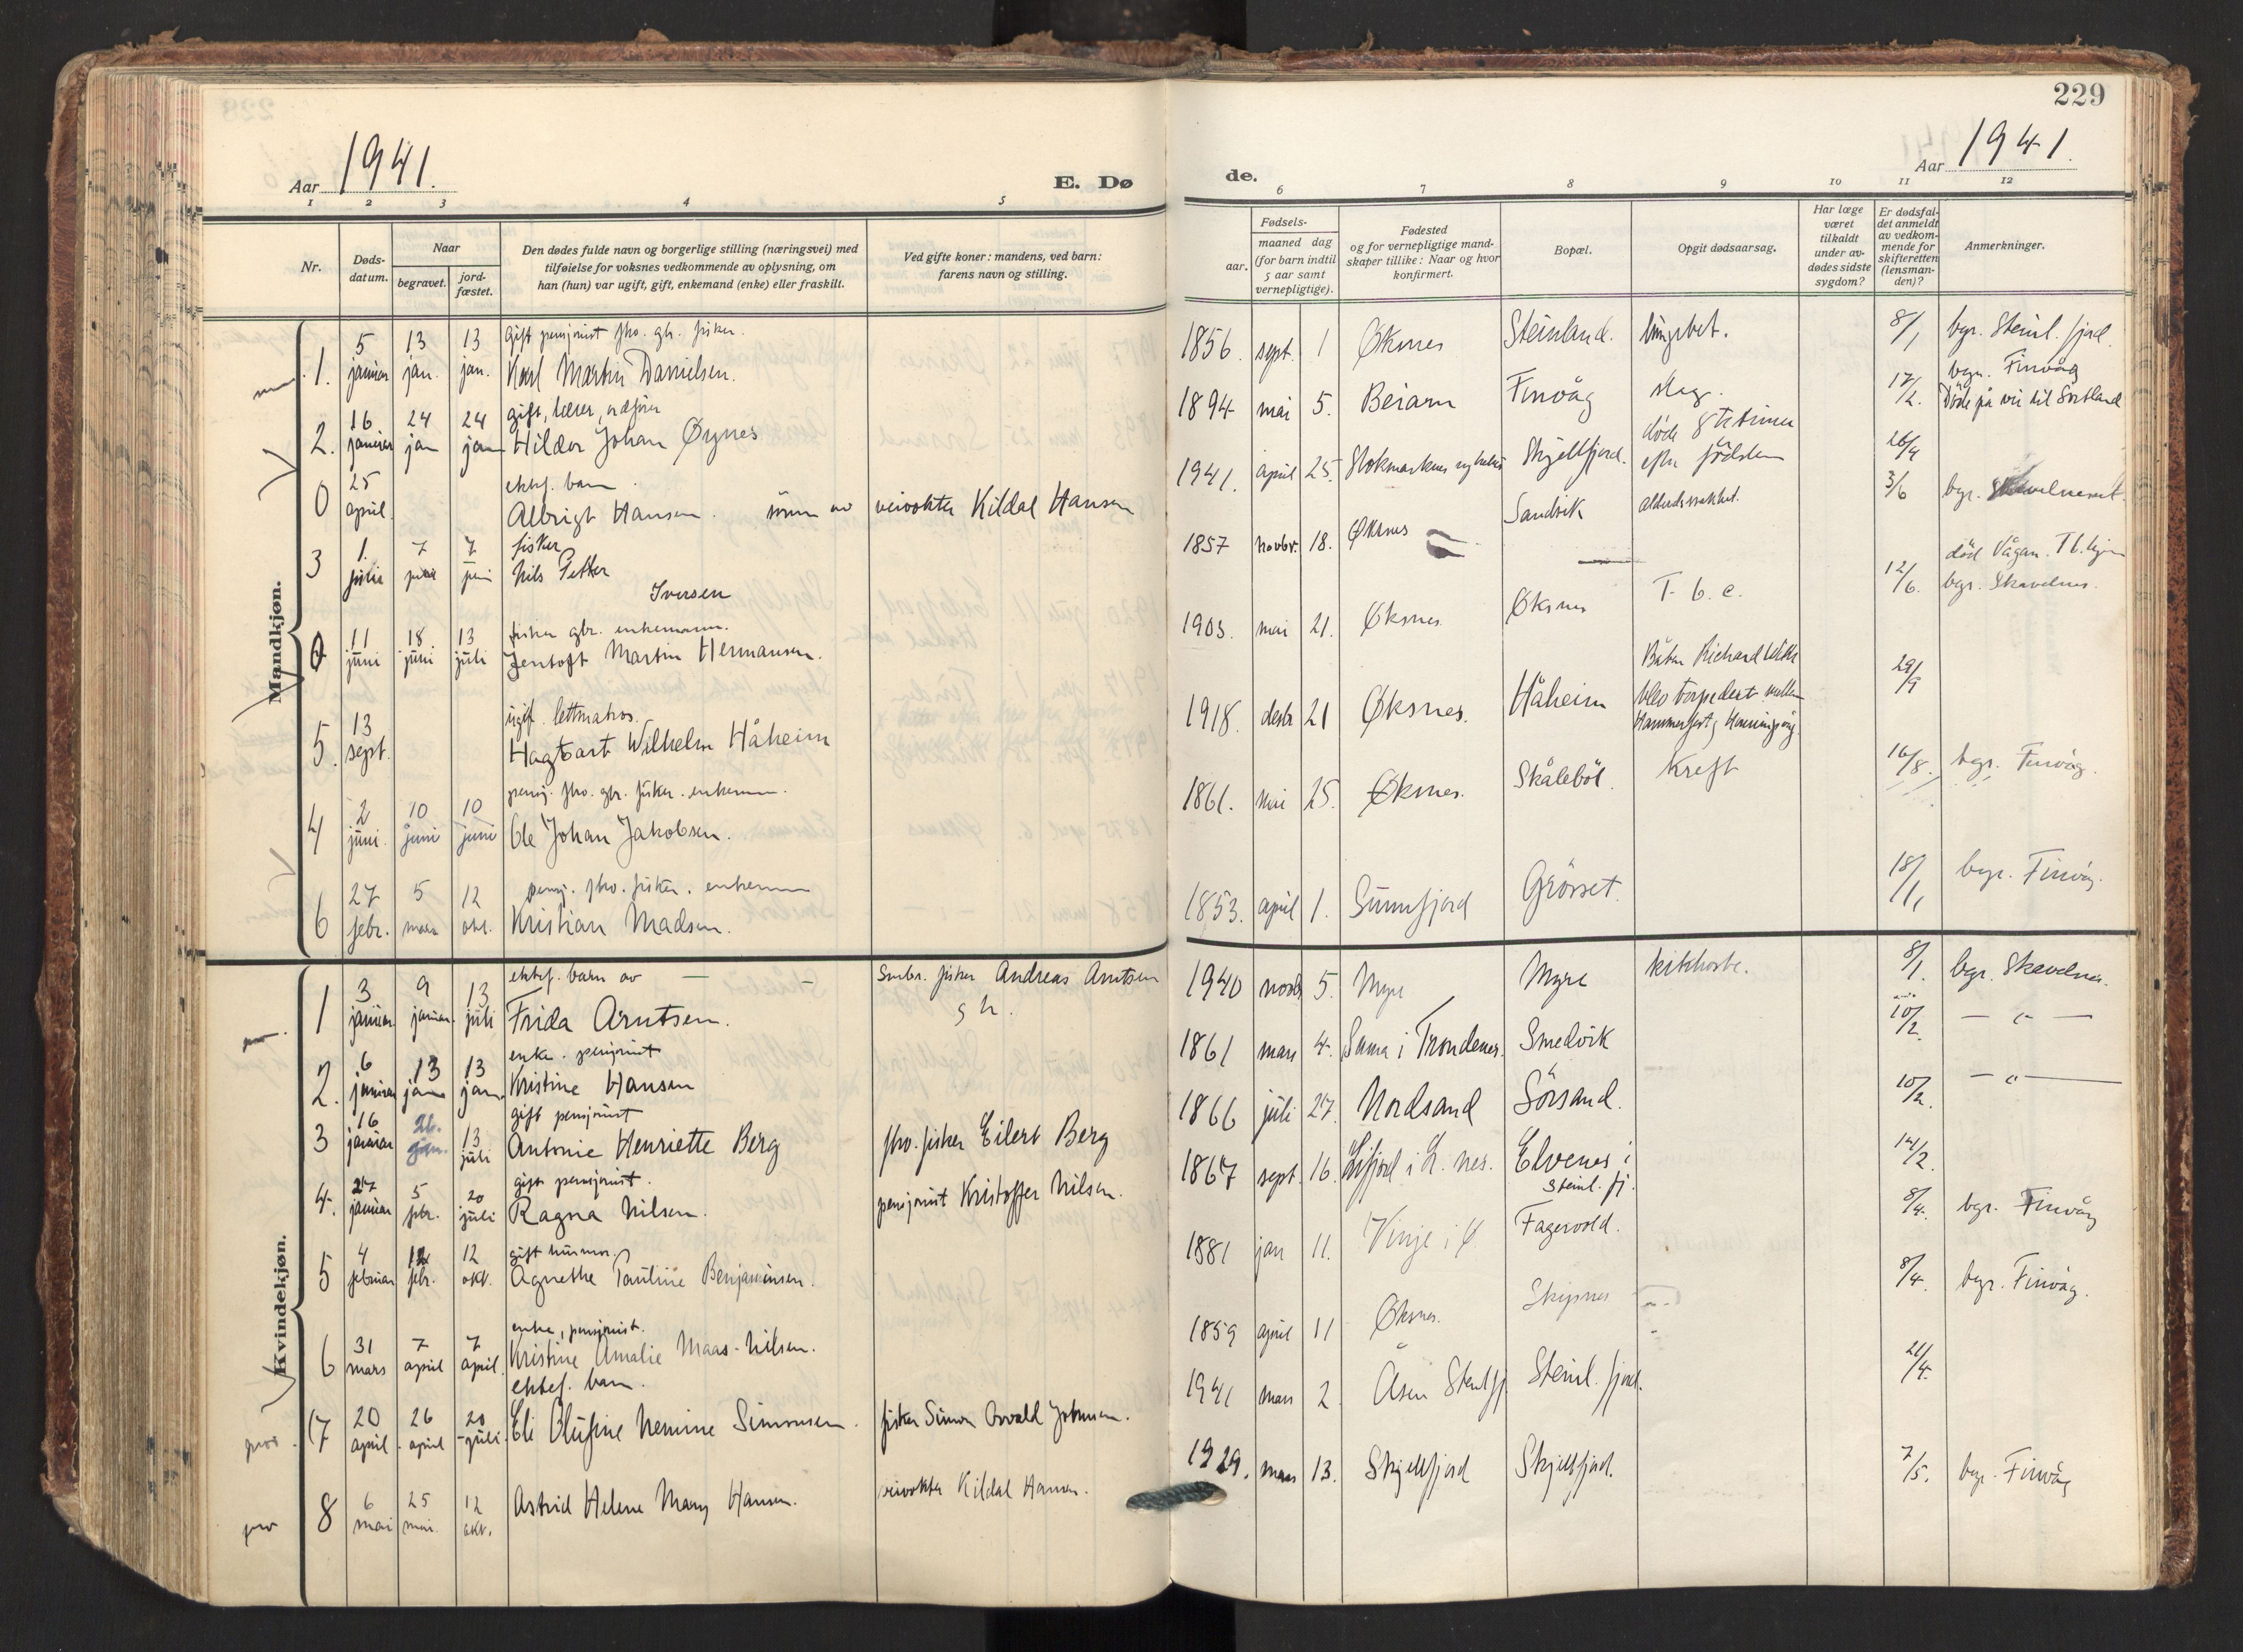 229
Aar 1941.
E. Dø
de.
Aar 1941.
1 2 3 4 5 6 7 8 9 10 11 12
Nr.
Døds-
datum.
Naar
begravet.
jord-
fæstet.
Den dødes fulde navn og borgerlige stilling (næringsvei) med
tilføielse for voksnes vedkommende av oplysning, om
han (hun) var ugift, gift, enkemand (enke) eller fraskilt.
Ved gifte koner: mandens, ved barn:
farens navn og stilling.
Fødsels-
aar.
maaned dag
(for barn indtil
5 aar samt
vernepligtige).
Fødested
og for vernepligtige mand-
skaper tillike: Naar og hvor
konfirmert.
Bopæl.
Opgit dødsaarsag.
Har læge
været
tilkaldt
under av-
dødes sidste
sygdom?
Er dødsfal-
det anmeldt
av vedkom-
mende for
skifteretten
(lensman-
den)?
Anmerkninger.
Mandkjøn.
gift pensjonist fho. gbr. fisker.
1. 5 januar 13 jan. 13 jan. Karl Martin Danielsen. 1856. sept. 1 Øksnes Steinland. lungebet. 8/1 bgr. Steinl. fjord.
gift, lærer, ordfører
2. 16 januar 24 jan 24 jan Hildor Johan Øynes 1894 mai 5. Beiarn Finvåg slag. 17/2. bgr. Finvåg
Døde på vei til Sortland
ektef. barn
0 25 april Albrigt Hansen. sönn av veivokter Kildal Hansen 1941. april 25. Stokmarknes sykehus Skjellfjord. döde 8 timer
efter födslen 26/4
fisker
3 1. juni 7 juni 7 juni Nils Petter
Iversen 1857 novbr. 18. Øksnes Sandvik alderdsvakhet. 3/6 bgr. Skavelneset.
fisker gbr. enkemann.
0 11 juni 18 juni 13 juli Jentoft Martin Hermansen. 1903. mai 21. Øksnes Øksnes T. b. c. 12/6. död Vågan. Tb. hjem
bgr. Skavelnes.
ugift. lettmatros.
5. 13 sept. Hagbart Wilhelm Håheim 1918. desbr 21 Øksnes. Håheim Båten Richard With
blev torpedert mellem
Hammerfest og Honningsvåg 29/9
pensj. fho. gbr. fisker. enkem.
4 2 juni. 10 juni 10 juni Ole Johan Jakobsen. 1861. mai 25. Øksnes. Skåleböl. Kreft 16/8. bgr. Finvåg.
pensj. fho. fisker. enkem
6 27 febr. 5 mars 12 okt. Kristian Madsen. 1853. april 1. Sunnfjord Grösset. 18/11 bgr. Finvåg.
Kvindekjøn.
ektef. barn av —
1 3 januar. 9 januar. 13 juli Frida Arntsen. Smbr. fisker Andreas Arntsen
s h. 1940 novbr 5. Myre Myre kikhoste. 8/1. bgr. Skavelnes.
enke. pensjonist
2. 6 januar 13 jan 13 jan. Kristine Hansen 1861 mars 4. Sama i Trondenes. Smedvik 10/2. — " —
gift pensjonist
3 16 januar 26. jan. 13 juli Antonie Henriette Berg fho. fisker Eilert Berg 1866 juli 27. Nordsand Sörsand. 10/2. — " —
gift pensjonist.
4. 27 januar 5 febr. 20 juli Ragna Nilsen. pensjonist Kristoffer Nilsen. 1867 sept. 16. i L. nes. Elvenes i
Steinl. fj. 12/2.
gift husmor.
5 4 februar 12 febr. 12 okt. Agnethe Pauline Benjaminsen. 1881 jan 11. Vinje i Fagervold. 8/4. bgr. Finvåg
enke, pensjonist.
6 31 mars 7 april 7 april. Kristine Amalie Maas-Nilsen. 1859 april 11 Øksnes. Skipnes 8/4. bgr. Finvåg.
ektef. barn.
7 20 april 26 april 20 juli. Eli Olufine Nemine Simonsen. fisker Simon Osvald Johansen. 1941 mars 2 Åsen Steinlfj Steinl. fjord. 21/4.
8 6 mai 25 mai. 12 okt. Astrid Helene Mary Hansen. veivokter Kildal Hansen. 1929. mars 13. Skjellfjord Skjellfjord. 7/5. bgr. Finvåg